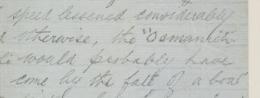 speed lessened considerably
otherwise, the "Osmanlieh
would probably have
come by the fall of a boat